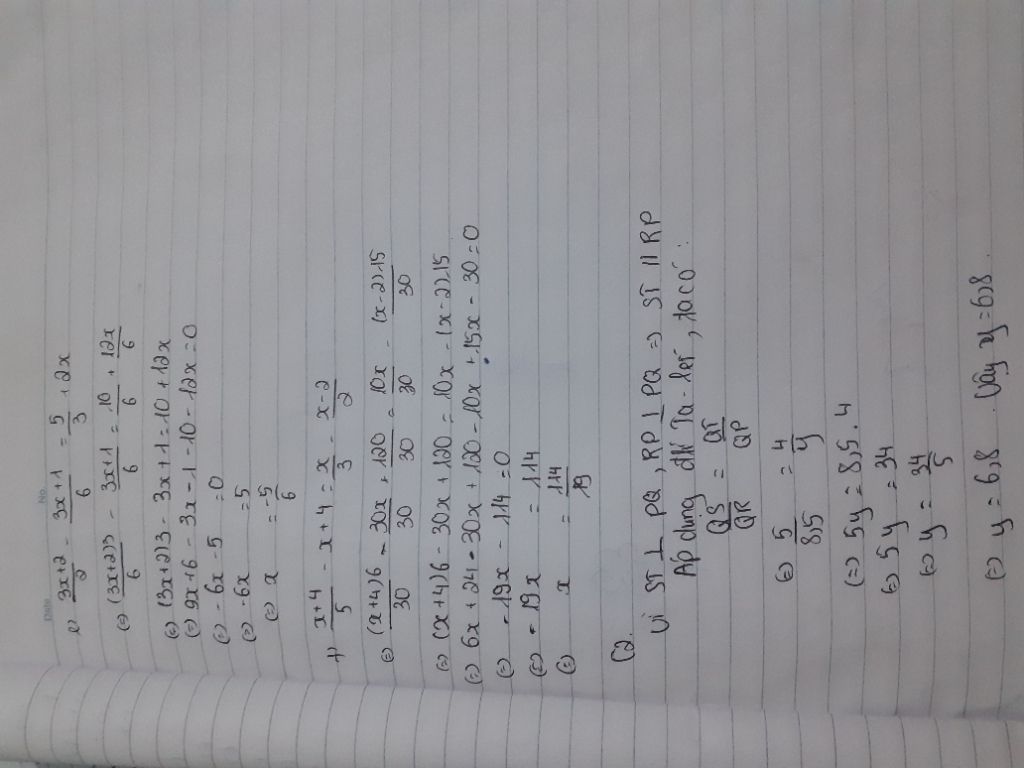 DATE No.
e) (3x+2)/2 - (3x+1)/6 = 5/3 + 2x
(=) (3x+2)3/6 - (3x+1)/6 = 10/6 + 12x/6
(=) (3x+2)3 - 3x+1 = 10+12x
(=) 9x+6 - 3x - 1 - 10 - 12x = 0
(=) -6x - 5 = 0
(=) -6x = 5
(=) x = -5/6
f) (x+4)/5 - x + 4 = x/3 - (x-2)/2
(=) (x+4)6/30 - 30x/30 + 120/30 = 10x/30 - (x-2)15/30
(=) (x+4)6 - 30x + 120 = 10x - (x-2)15
(=) 6x + 24 - 30x + 120 - 10x + 15x - 30 = 0
(=) -19x - 114 = 0
(=) -19x = 114
(=) x = 114/19
C2.
Vì ST ⊥ PQ, RP ⊥ PQ => ST // RP
Áp dụng đlí Ta-let, ta có:
QS/QR = QT/QP
(=) 5/8,5 = 4/y
(=) 5y = 8,5 . 4
(=) 5y = 34
(=) y = 34/5
(=) y = 6,8 . Vậy y = 6,8.